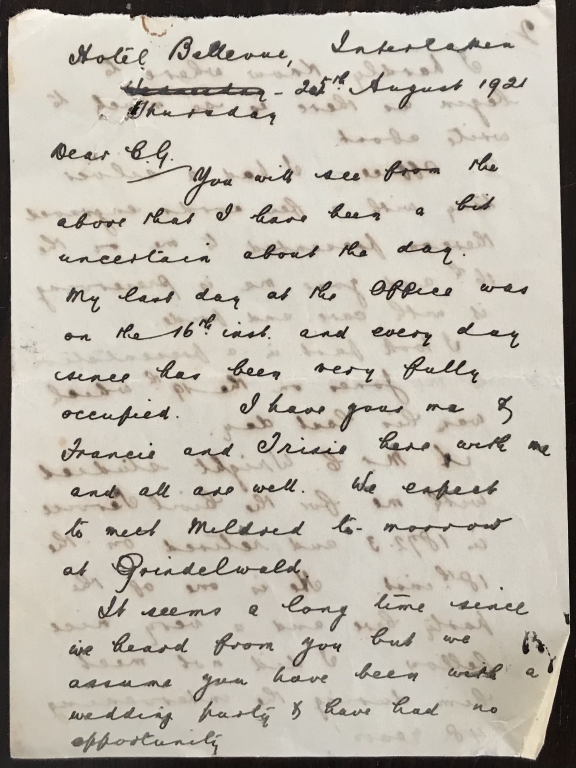 Hotel Bellevue, Interlaken
Wednesday - 25th August 1921
Thursday
Dear C.G.
You will see from the
above that I have been a bit
uncertain about the day.
My last day at the Office was
on the 16th inst. and every day
since has been very fully
occupied. I have your ma &
Francie and Trisie here with me
and all are well. We expect
to meet Mildred to-morrow
at Grindelwald
It seems a long time since
we heard from you but we
assume you have been with a
wedding party & have had no
opportunity